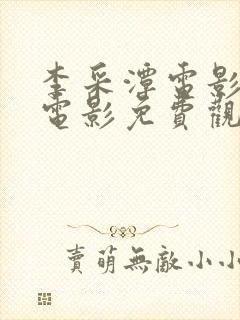 李采潭電影
電影免費觀
賣萌無敵小小